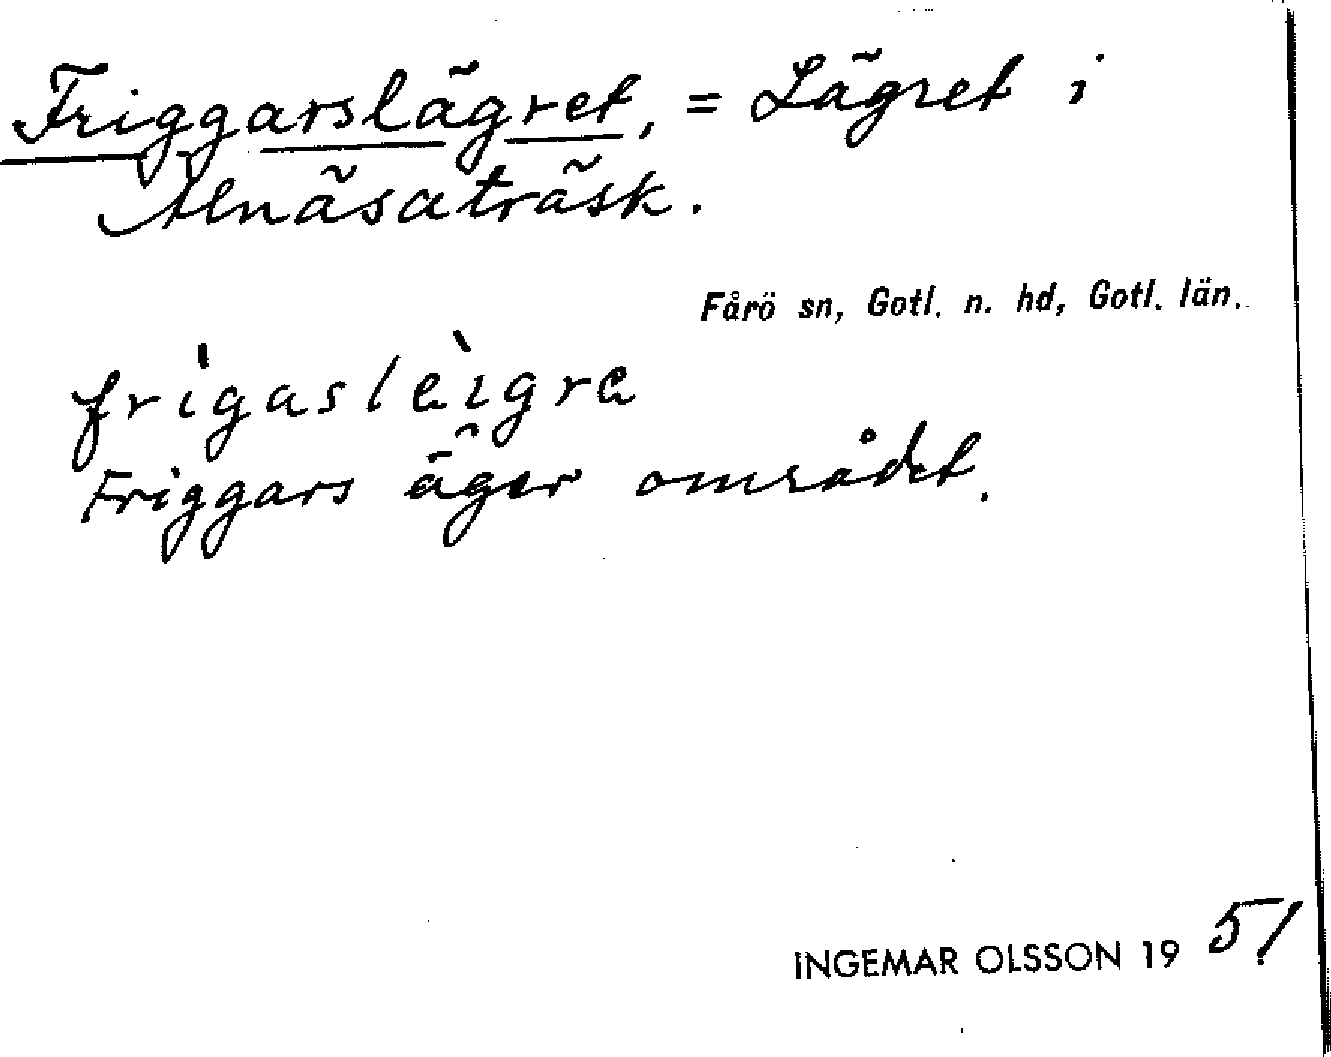 Friggarslägret, = Lägret i
Alnäsaträsk.
Fårö sn, Gotl. n. hd, Gotl. län.
frìgaslèıgre
Friggars äger området.
INGEMAR OLSSON 19 51